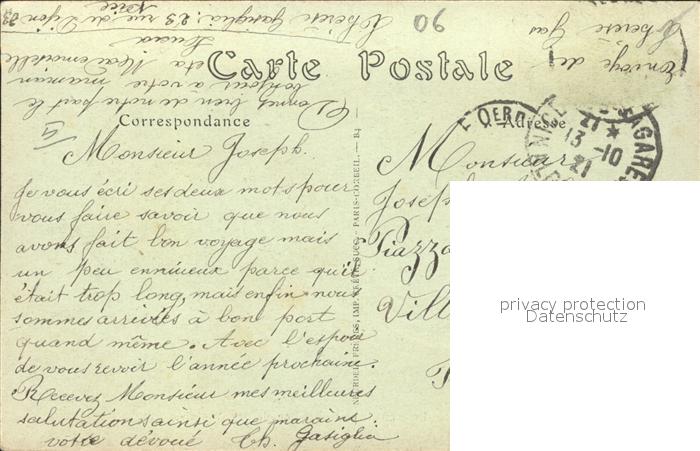 Envoyé de
Therese Gas
Thérèse Gasiglia : 23 rue de Dijon
Nice
90
Carte Postale
Correspondance
Adresse
Monsieur Joseph.
Je vous écri ses deux mots pour
vous faire savoir que nous
avons fait bon voyage mais
un peu ennuieux parce qu'il
était trop long, mais enfin nous
sommes arrivés à bon port
quand même. Avec l'espoir
de vous revoir l'année prochaine.
Recevez Monsieur mes meilleures
salutations ainsi que maraine.
votre dévoué Th. Gasiglia
Donnez bien de notre part le
bonjour a votre maman
et a Mademoiselle
Monsieur
Josep
Piazza
Vill
13-10
21
PARIS-CORBEIL.
privacy protection
Datenschutz